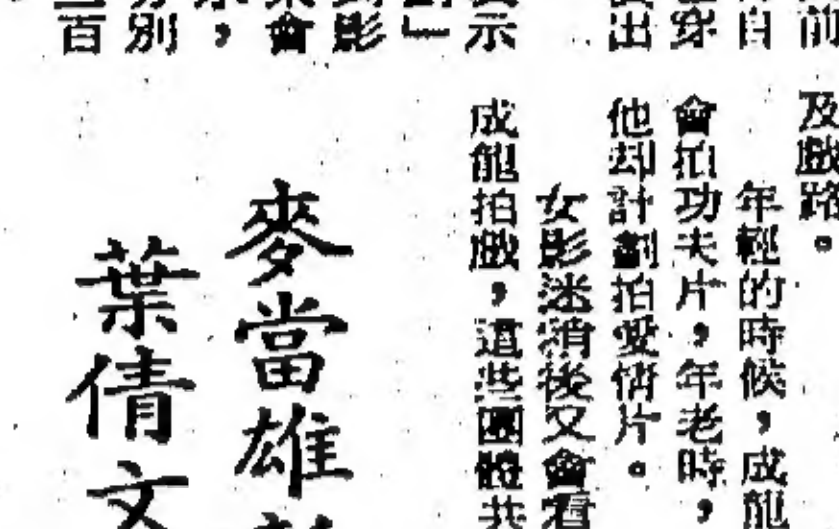 前
自
穿
出
示
」
影
會
，
別
百
及戲路。
年輕的時候，成龍
會拍功夫片，年老時，
他却計劃拍愛情片。
女影迷稍後又會看
成龍拍戲，這些團體共
麥當雄
葉倩文